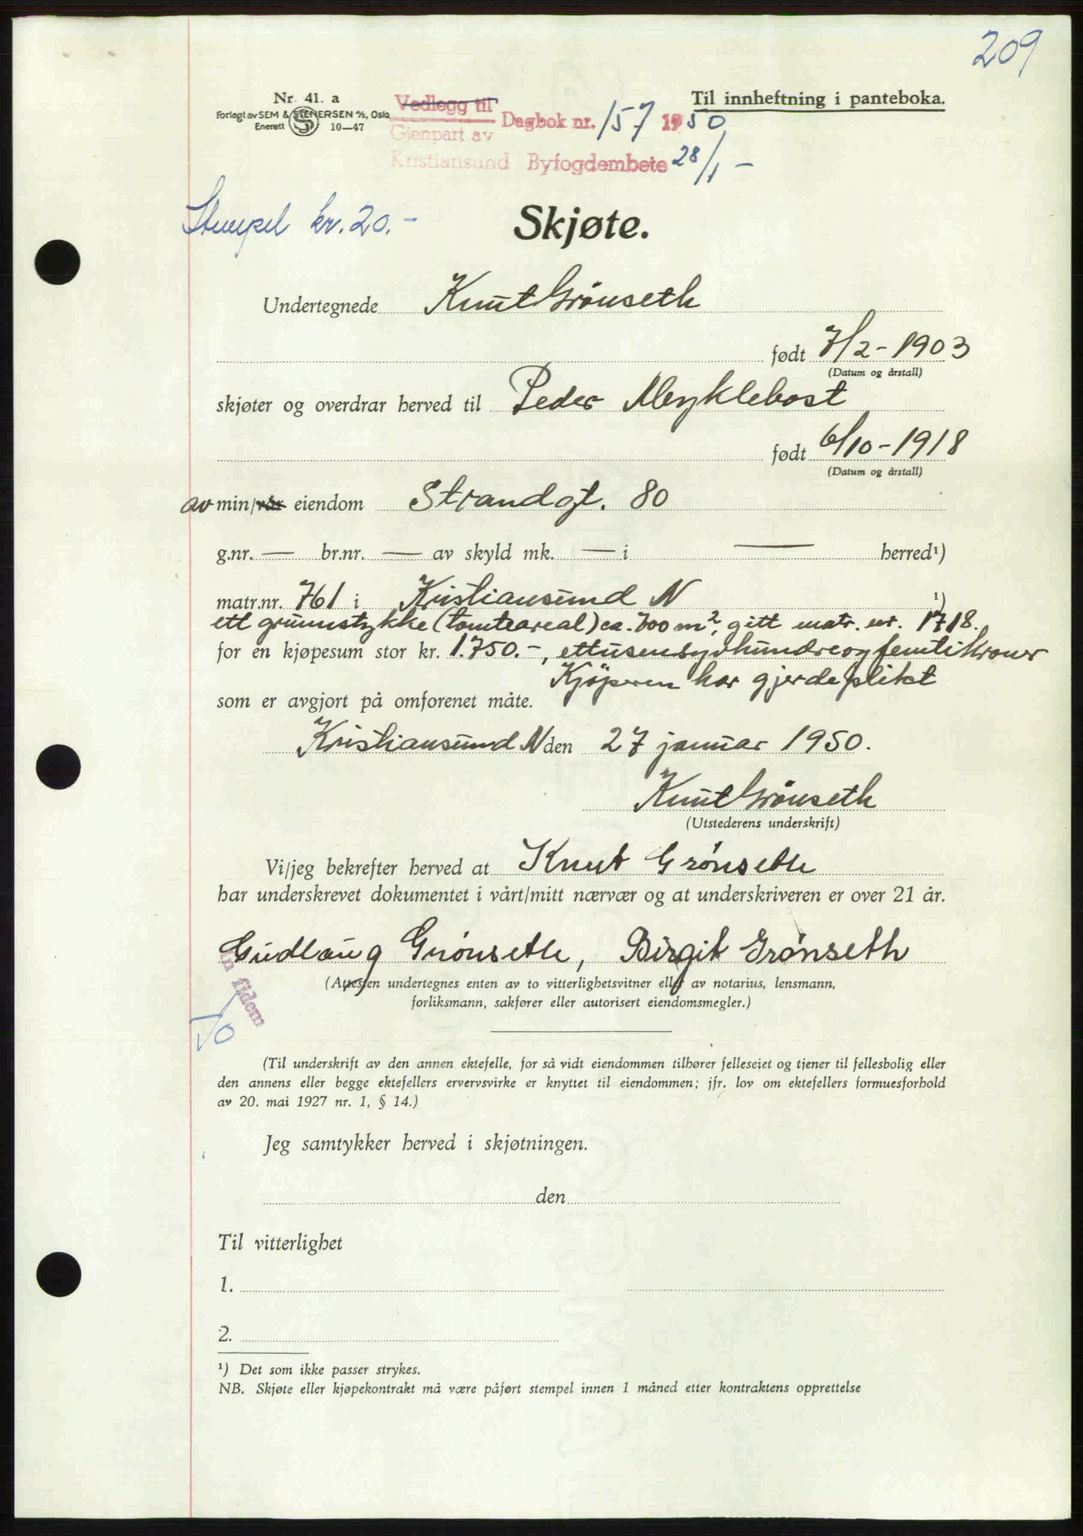 209
Nr. 41. a
Forlagt av SEM & STENERSEN A/S, Oslo
Enerett S 10—47
Vedlegg til
Gjenpart av
Dagbok nr. 157 1950
Kristiansund Byfogdembete 28/1 –
Til innheftning i panteboka.
Stempel kr. 20.–
Skjøte.
Undertegnede Knut Grönseth
født 7/2 - 1903
(Datum og årstall)
skjøter og overdrar herved til Peder Myklebost
født 6/10 - 1918
(Datum og årstall)
av min/vår eiendom Strandgt. 80
g.nr. — br.nr. — av skyld mk. — i — herred¹)
matr.nr. 761 i Kristiansund N ¹)
ett grunnstykke (tomteareal) ca. 700 m², gitt matr. nr. 1718.
for en kjøpesum stor kr. 1.750.-, ettusensyvhundreogfemti kroner
Kjöperen har gjerdeplikt
som er avgjort på omforenet måte.
Kristiansund N den 27 januar 1950.
Knut Grönseth
(Utstederens underskrift)
Vi/jeg bekrefter herved at Knut Grønseth
har underskrevet dokumentet i vårt/mitt nærvær og at underskriveren er over 21 år.
Gudlaug Grönseth, Birgit Grønseth
(Attesten undertegnes enten av to vitterlighetsvitner eller av notarius, lensmann,
forliksmann, sakfører eller autorisert eiendomsmegler.)
In fidem
(Til underskrift av den annen ektefelle, for så vidt eiendommen tilhører felleseiet og tjener til fellesbolig eller
den annens eller begge ektefellers ervervsvirke er knyttet til eiendommen; jfr. lov om ektefellers formuesforhold
av 20. mai 1927 nr. 1, § 14.)
Jeg samtykker herved i skjøtningen.
den
Til vitterlighet
1.
2.
¹) Det som ikke passer strykes.
NB. Skjøte eller kjøpekontrakt må være påført stempel innen 1 måned etter kontraktens opprettelse